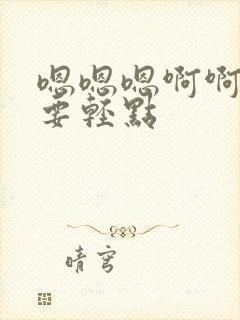 嗯嗯嗯啊啊
要輕點
晴宮